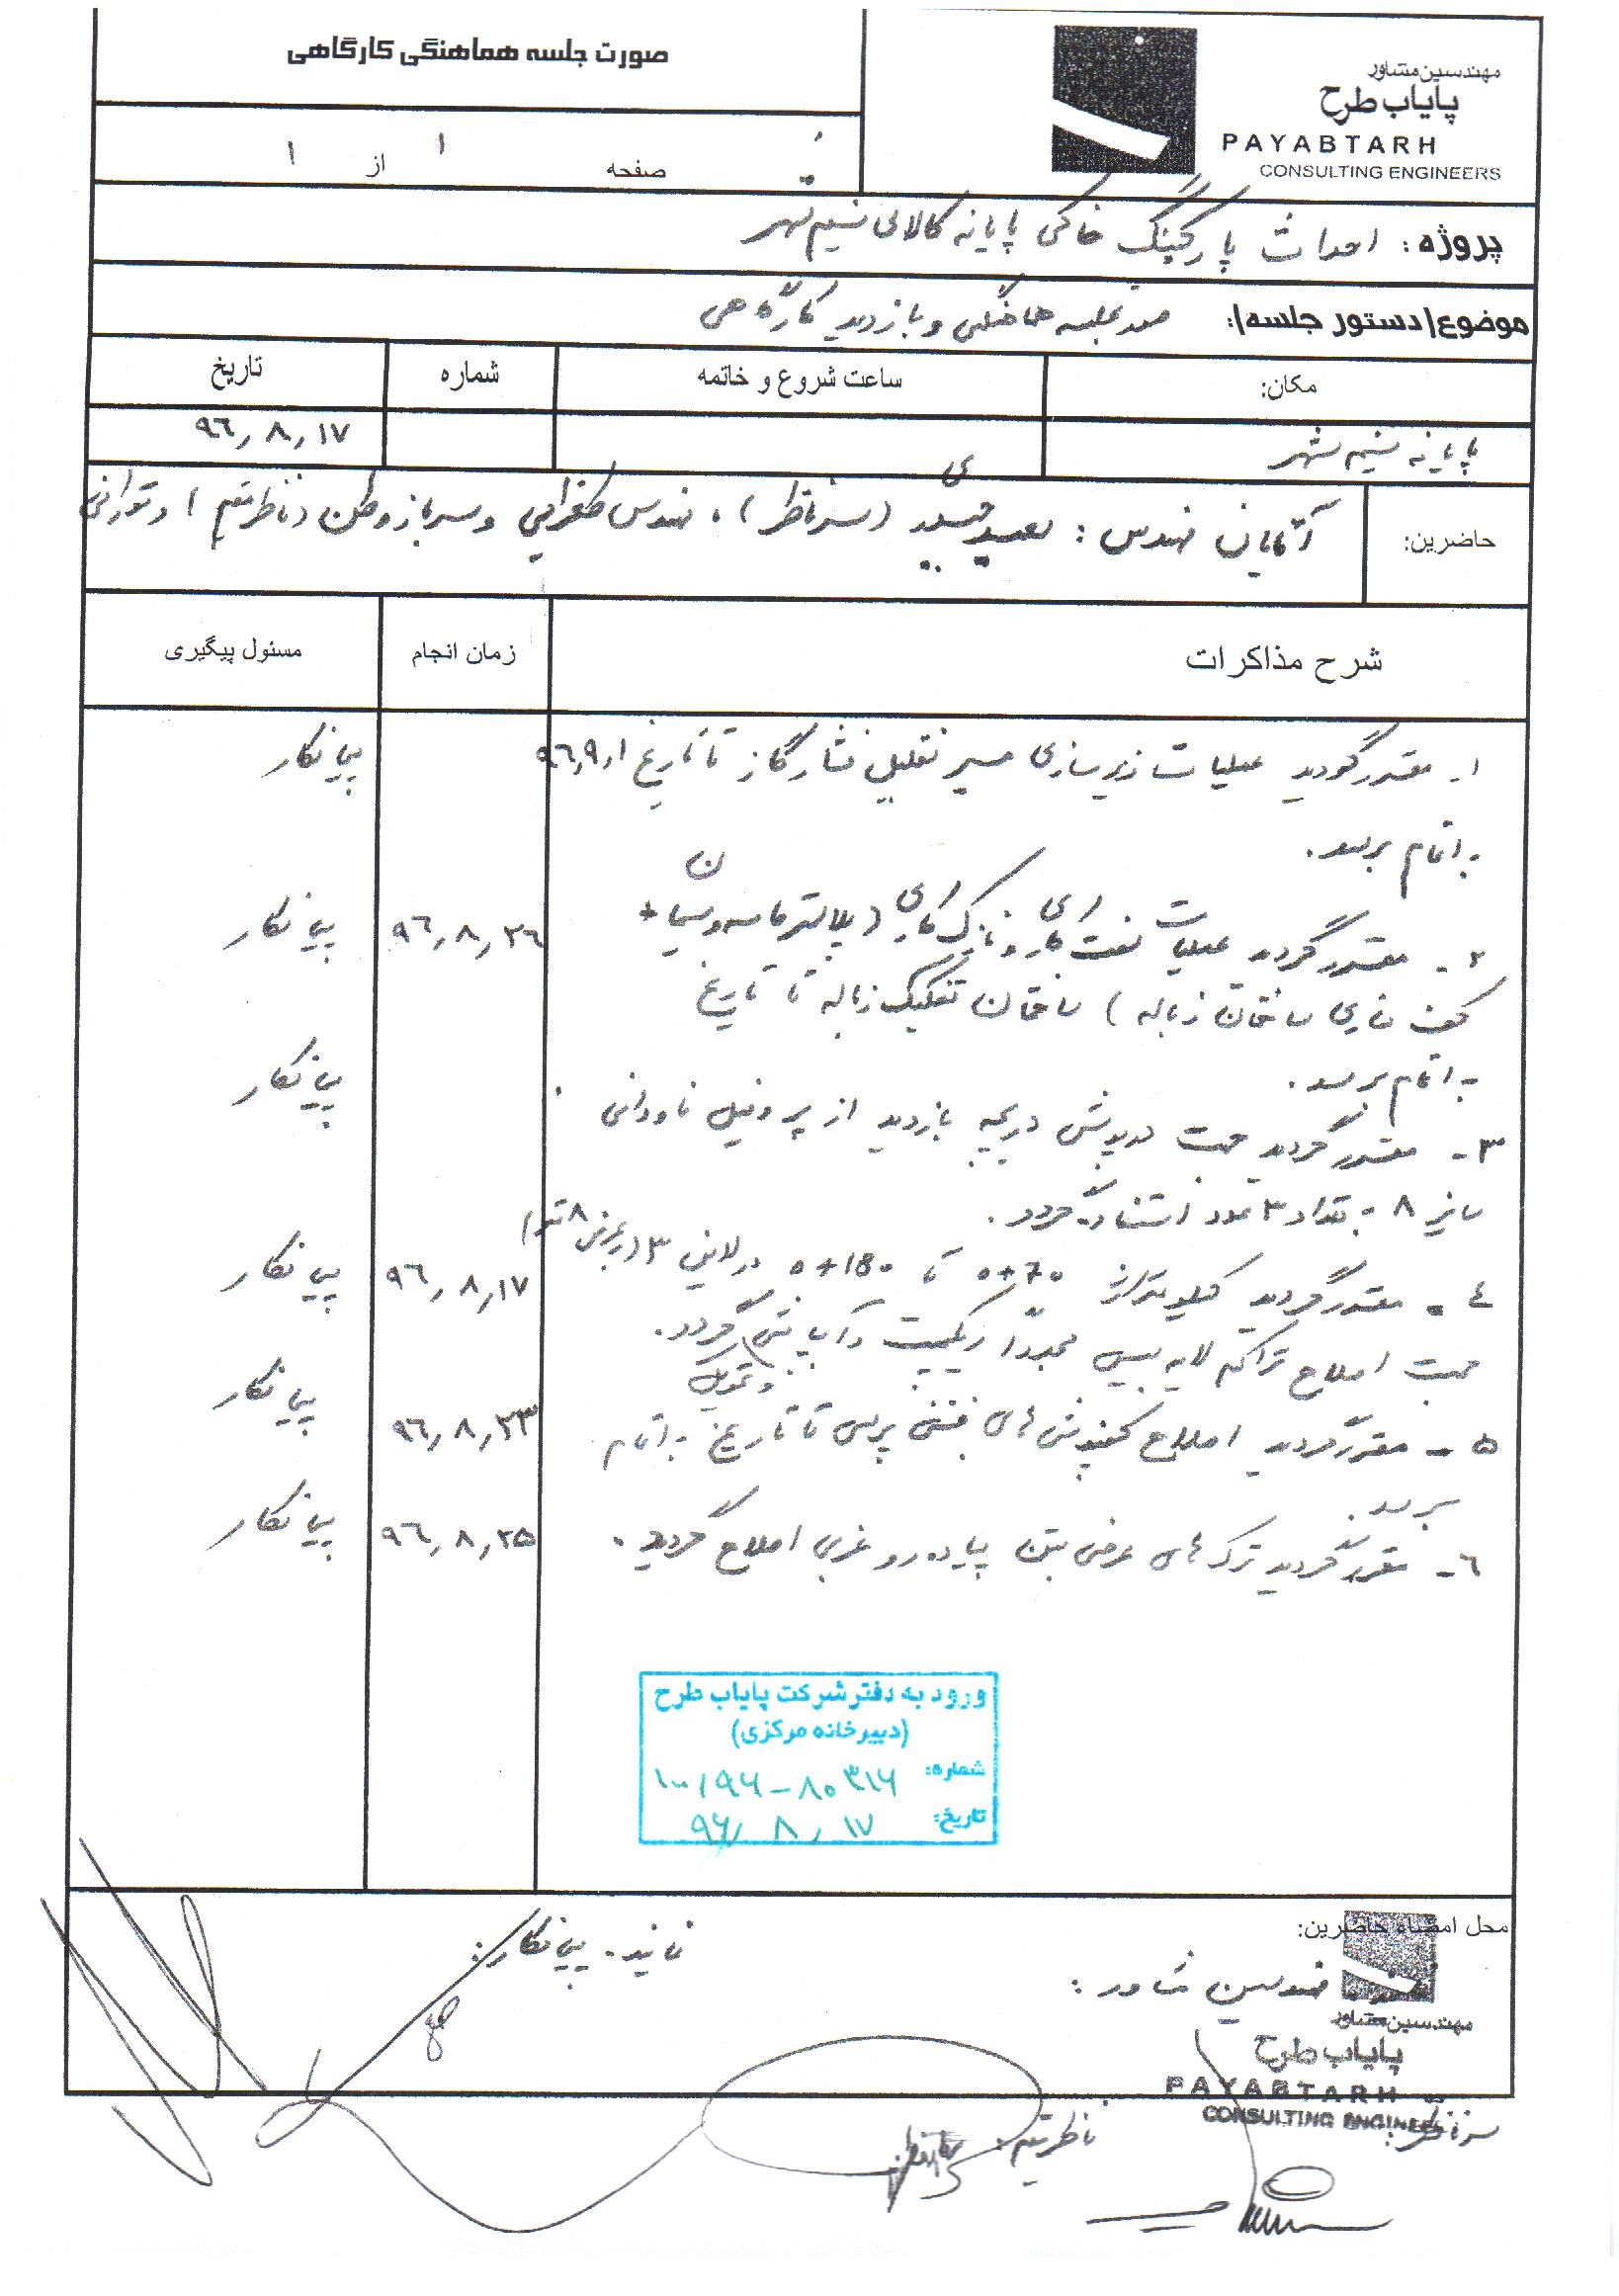 صورت جلسه هماهنگی کارگاهی
مهندسین مشاور
پایاب طرح
PAYABTARH
CONSULTING ENGINEERS
صفحه ۱ از ۱
پروژه: احداث پارکینگ خاکی پایانه کالای نسیم شهر
موضوع(دستور جلسه): صورتجلسه هماهنگی و بازدید کارگاهی
مکان: ساعت شروع و خاتمه شماره تاریخ
پایانه نسیم شهر ۹۶٫۸٫۱۷
حاضرین: آقایان مهندس: (سرناظر)، مهندس طغرایی و سرباز وطن (ناظر مقیم) و تورانی
شرح مذاکرات زمان انجام مسئول پیگیری
۱- مقرر گردید عملیات زیرسازی مسیر تقلیل فشار گاز تا تاریخ ۹۶٫۹٫۱ پیمانکار
به اتمام برسد.
۲- مقرر گردید عملیات سفت کاری و نازک کاری (پلاستر ماسه و سیمان + ۹۶٫۸٫۲۶ پیمانکار
کف سازی ساختمان زباله) ساختمان تفکیک زباله تا تاریخ
به اتمام برسد.
۳- مقرر گردید جهت درپوش دریچه بازدید از پروفیل ناودانی پیمانکار
سایز ۸ به تعداد ۳ عدد استفاده گردد.
۴- مقرر گردید کیلومتراژ 0+70 تا 0+180 در لاین ۳ (بعرض ۸ متر) ۹۶٫۸٫۱۷ پیمانکار
جهت اصلاح تراکم لایه بیس مجدداً ریکمپت و آب پاشی گردد.
۵- مقرر گردید اصلاح کفپوش های بتنی پرسی و تحویل تا تاریخ به اتمام ۹۶٫۸٫۲۳ پیمانکار
برسد
۶- مقرر گردید ترک های عرضی بتن پیاده رو غربی اصلاح گردد. ۹۶٫۸٫۲۵ پیمانکار
ورود به دفتر شرکت پایاب طرح
(دبیرخانه مرکزی)
شماره: ۱۰۰/۹۶-۸۰۳۱۶
تاریخ: ۹۶٫۸٫۱۷
محل امضاء حاضرین:
مهندسین مشاور: نماینده پیمانکار:
مهندسین مشاور
پایاب طرح
PAYABTARH
CONSULTING ENGINEERS
سرناظر: ناظر مقیم: